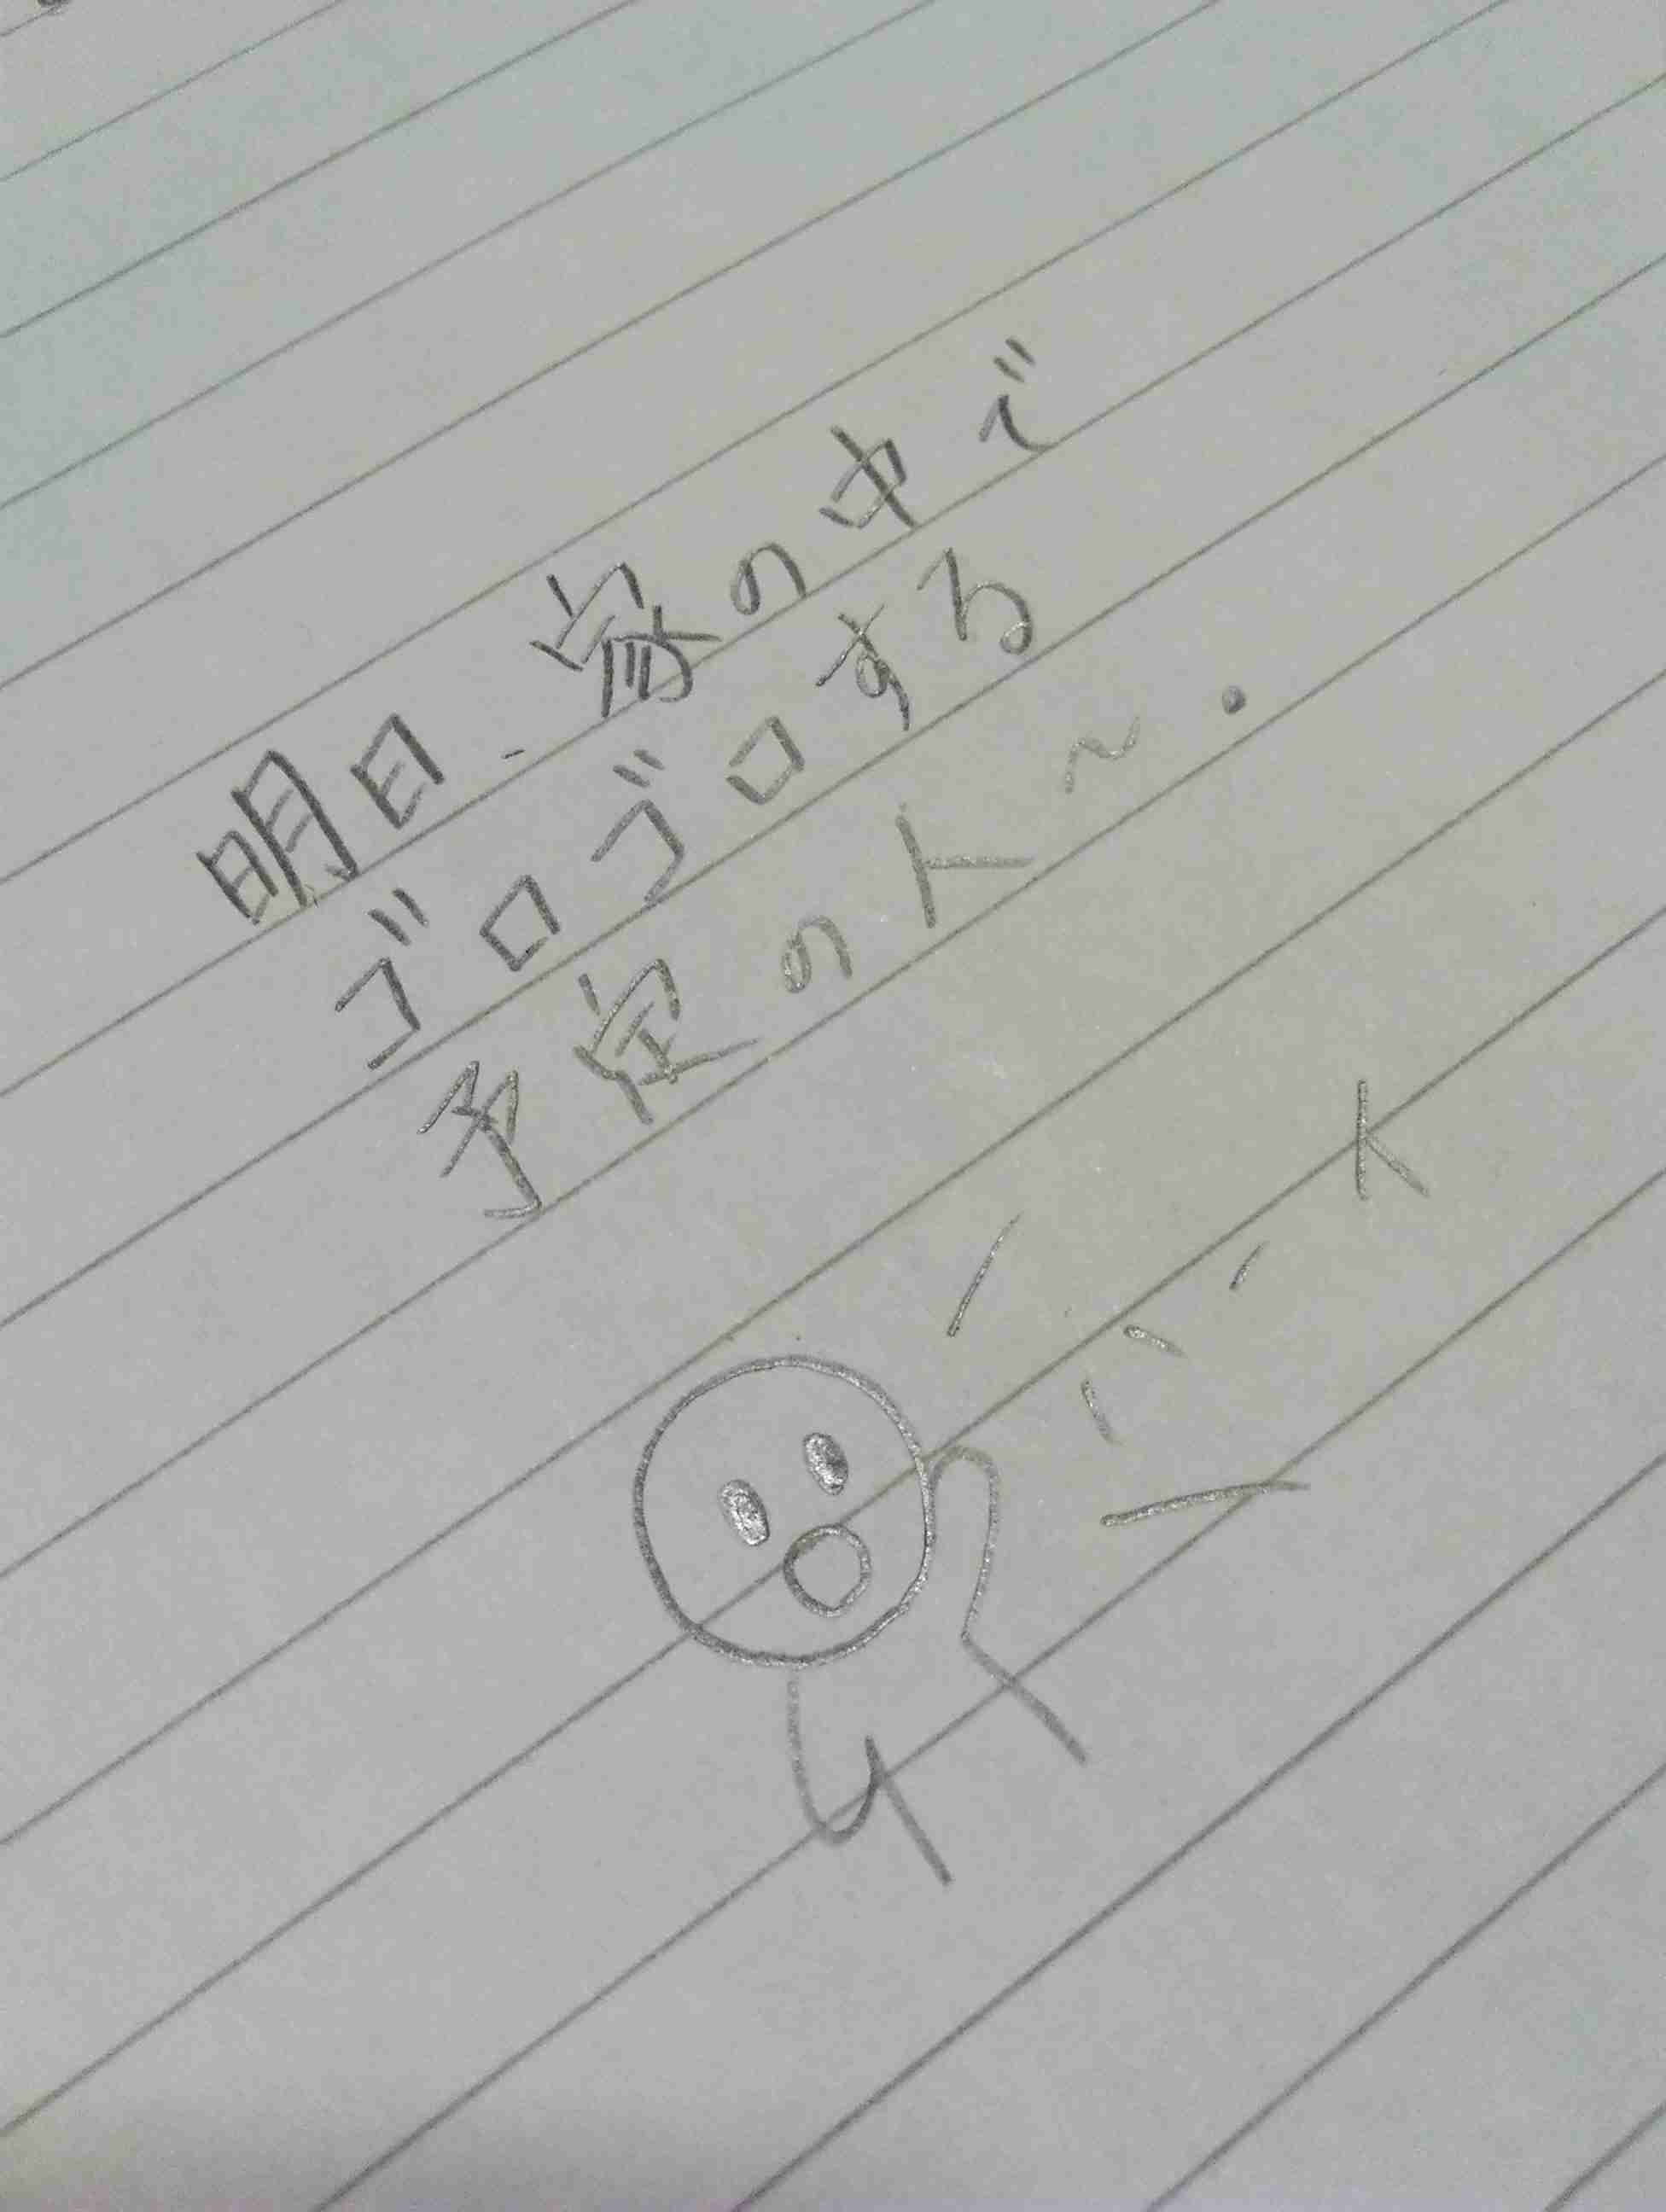 明日、家の中で
ゴロゴロする
予定の人〜.
ハーイ